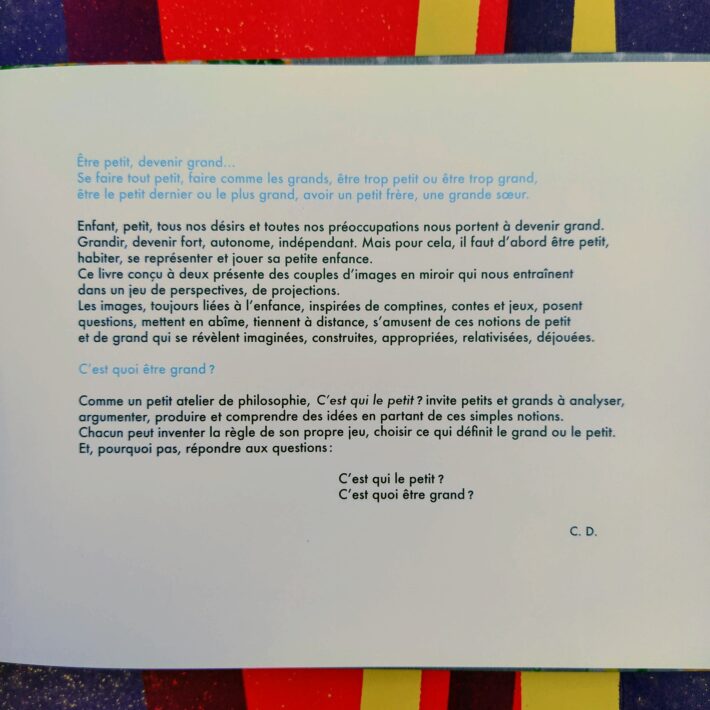 Être petit, devenir grand...
Se faire tout petit, faire comme les grands, être trop petit ou être trop grand,
être le petit dernier ou le plus grand, avoir un petit frère, une grande sœur.
Enfant, petit, tous nos désirs et toutes nos préoccupations nous portent à devenir grand.
Grandir, devenir fort, autonome, indépendant. Mais pour cela, il faut d'abord être petit,
habiter, se représenter et jouer sa petite enfance.
Ce livre conçu à deux présente des couples d'images en miroir qui nous entraînent
dans un jeu de perspectives, de projections.
Les images, toujours liées à l'enfance, inspirées de comptines, contes et jeux, posent
questions, mettent en abîme, tiennent à distance, s'amusent de ces notions de petit
et de grand qui se révèlent imaginées, construites, appropriées, relativisées, déjouées.
C'est quoi être grand ?
Comme un petit atelier de philosophie, C'est qui le petit ? invite petits et grands à analyser,
argumenter, produire et comprendre des idées en partant de ces simples notions.
Chacun peut inventer la règle de son propre jeu, choisir ce qui définit le grand ou le petit.
Et, pourquoi pas, répondre aux questions :
C'est qui le petit ?
C'est quoi être grand ?
C. D.